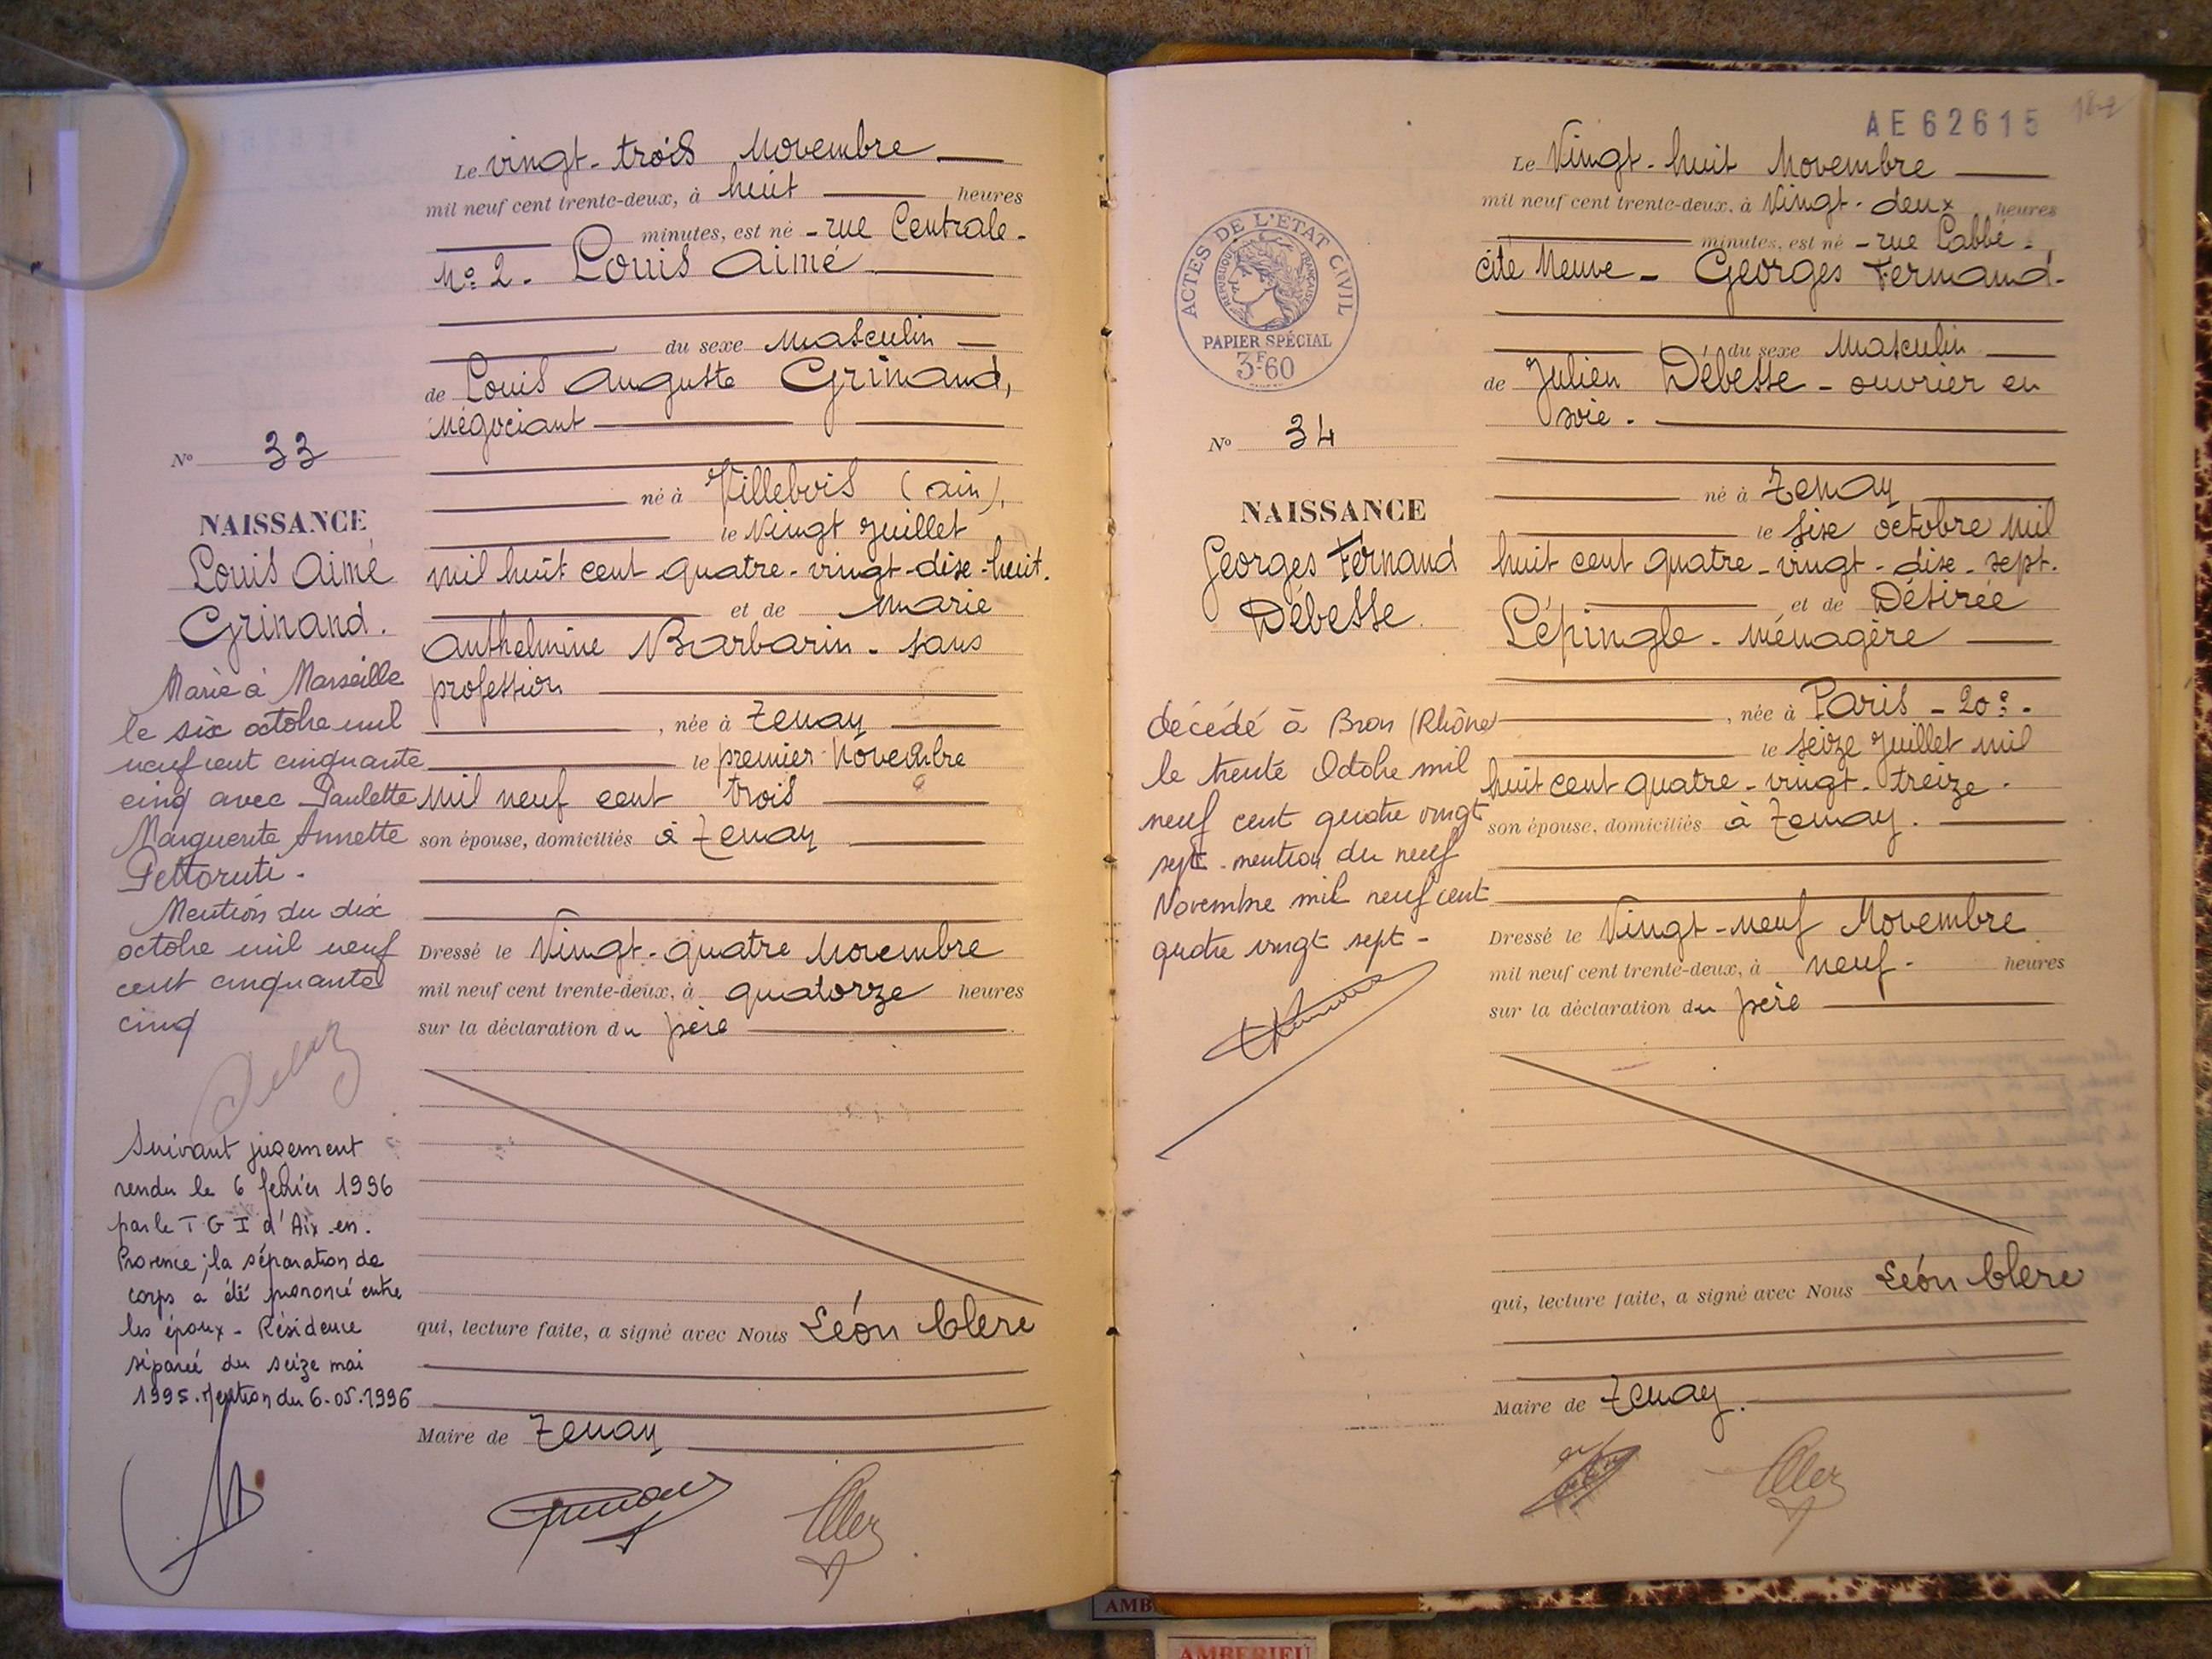 Le vingt-trois Novembre
mil neuf cent trente-deux, à huit heures
minutes, est né - rue Centrale -
N° 2. Louis Aimé
du sexe masculin
de Louis Auguste Grinand,
négociant
né à Villebois (Ain),
le vingt Juillet
mil huit cent quatre-vingt-dix-huit.
et de Marie
Anthelmine Barbarin - sans
profession
, née à Tenay
le premier Novembre
mil neuf cent trois
son épouse, domiciliés à Tenay
Dressé le Vingt-quatre Novembre
mil neuf cent trente-deux, à quatorze heures
sur la déclaration du père
qui, lecture faite, a signé avec Nous Léon Clerc
Maire de Tenay
N° 33
NAISSANCE
Louis Aimé
Grinand.
Marié à Marseille
le six octobre mil
neuf cent cinquante
cinq avec Paulette
Marguerite Annette
Pettoruti.
Mention du dix
octobre mil neuf
cent cinquante
cinq
Suivant jugement
rendu le 6 février 1996
par le T G I d'Aix-en-
Provence; la séparation de
corps a été prononcé entre
les époux - Résidence
séparée du seize mai
1995. Mention du 6-05-1996
AE62615
Le Vingt-huit Novembre
mil neuf cent trente-deux, à Vingt-deux heures
minutes, est né - rue Labbé -
cité Neuve - Georges Fernand -
du sexe Masculin
de Julien Débesse - ouvrier en
soie.
né à Tenay
le six octobre mil
huit cent quatre-vingt-dix-sept.
et de Désirée
Lépingle - ménagère
, née à Paris - 20e -
le seize Juillet mil
huit cent quatre-vingt-treize.
son épouse, domiciliés à Tenay.
Dressé le Vingt-neuf Novembre
mil neuf cent trente-deux, à neuf - heures
sur la déclaration du père
qui, lecture faite, a signé avec Nous Léon Clerc
Maire de Tenay.
ACTES DE L'ETAT CIVIL
REPUBLIQUE FRANÇAISE
PAPIER SPÉCIAL
3F60
N° 34
NAISSANCE
Georges Fernand
Débesse.
décédé à Bron (Rhône)
le trente Octobre mil
neuf cent quatre vingt
sept - mention du neuf
Novembre mil neuf cent
quatre vingt sept -
AMB
AMBERIEU